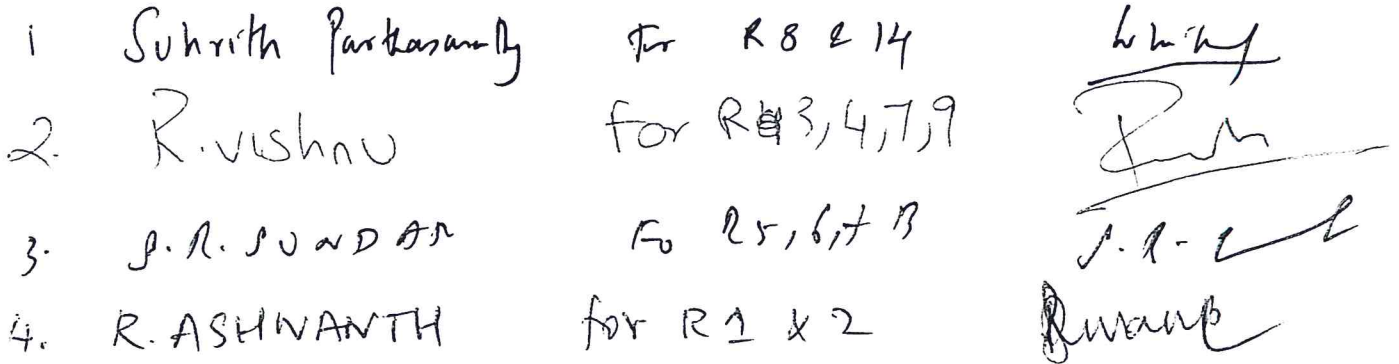 1 Suhrith Parthasarathy for R 8 & 14
2. R. Vishnu for R 3, 4, 7, 9
3. S. R. SUNDAR Fo R 5, 6, + 13
4. R. ASHWANTH for R 1 & 2